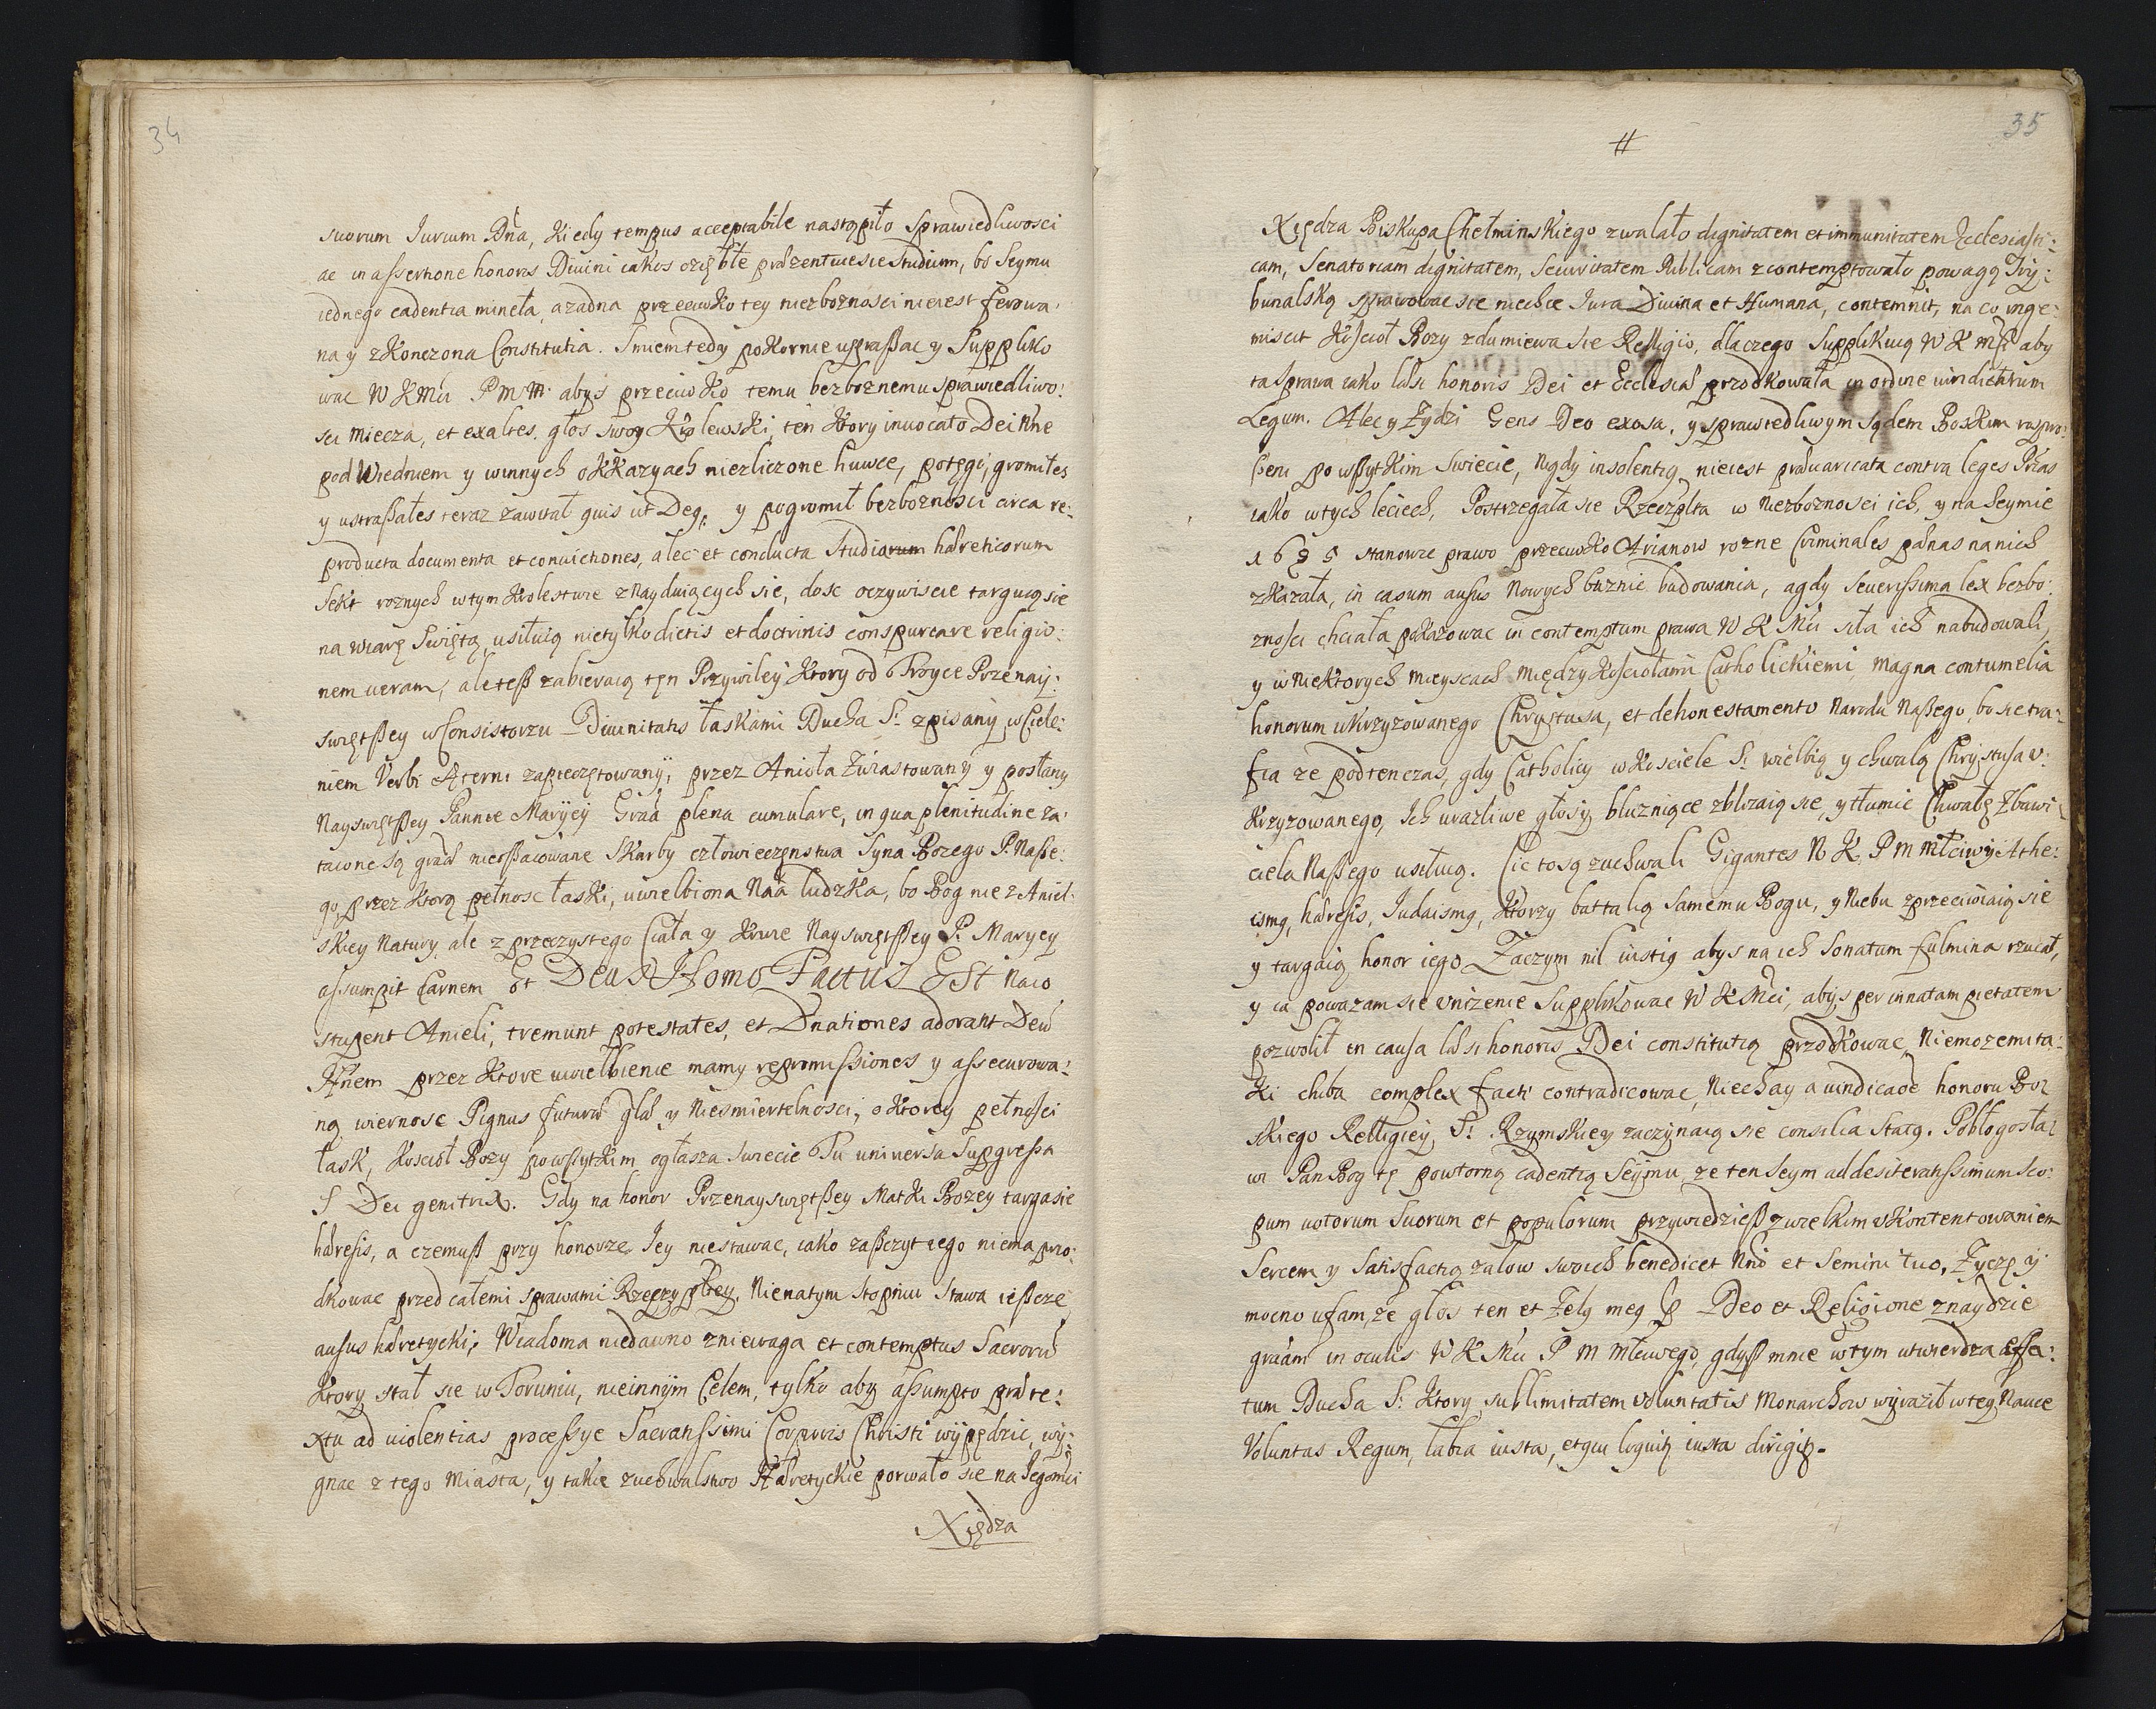 34
suorum Iurium Dña, Kiedy tempus acceptabile nastąpiło Sprawiedliwosci
ac in assertione honoris Divini iakos ozięble præzentuie sie Studium, bo Seymu
iednego cadentia mineła, a zadna przeciwko tey niezboznosci nie iest ferowa:
na y zKonczona Constitutia. Smiem tedy poKornie upraßac y Suppliko
wac W K Mci P M M. abys przeciwko temu bezboznemu sprawiedliwo:
sci Miecza, et exaltes, głos swoy Krolewski, ten Ktory invocato Dei Nñe
pod Wiedniem y winnych oKKazyach niezliczone huwce, potęgi, gromiłes
y ustraßałes teraz zawołał quis ut Deq, y pogromił bezboznosci circa re:
producta documenta et convictiones, alec et conducta Studiorum hæreticorum
Sekt roznych wtym Krolestwie znayduiących sie, dosc oczywiscie targuią sie
na wiarę Swiętą, usiłuią nietylko dictis et doctrinis conspurcare religio:
nem veram, ale teß zabieraią ten Przywiley Ktory od Troyce Przenay:
swiętßey w Consistorzu Divinitatis łaskami Ducha S: zpisany, wCiele:
niem Verbi Æterni zapieczętowany, przez Anioła Zwiastowany y posłany
Nayswiętßey Pannie Maryey Graã plena cumulare, in qua plenitudine za:
taione są graæ nieoßacowane Skarby człowieczęnstwa Syna Bozego P. Naße:
go, przez Ktorą pełnosc łaski, uwielbiona Naã ludzka, bo Bog nie z Aniel:
skiey Natury ale z przeczystego Ciała y Krwie Nayswiętßey P: Maryey
assumpsit Carnem Et Deus Homo Factus Est na co
stupent Anieli, tremunt potestates, et Dnationes adorant Deũ
Hñem przez Ktore uwielbienie mamy repromissiones y assecurowa:
ną wiernosc Pignus futuræ glæ y Niesmiertelnosci, o Ktorey pełnosci
łask, Kosciół Bozy powßytkim ogłasza swiecie Tu universa Supgressa
S Dei genitrix. Gdy na honor Przenayswiętßey Matki Bozey targa sie
hæresis, a czemuß przy honorze Jey niestawac, iako zaßczyt iego niema przo:
dkowac przed całemi sprawami Rzeczypltey. Nienatym Stopniu Stawa ießcze
ausus hæretycki, Wiadoma niedawno zniewaga et contemptus Sacrorũ
Ktory stał sie w Toruniu, nieinnym Celem, tylko aby assumpto præte:
xtu ad violentias processye Sacratissimi Corporis Christi wypędzic, wy:
gnac z tego Miasta, y takie zuchwalstwo Hæretyckie porwało sie na Jegomci
Xiędza
35
#
Xiędza Biskupa Chełminskiego zwalało dignitatem et immunitatem Ecclesiasti:
cam, Senatoriam dignitatem, Securitatem Publicam zcontemptowało powagę Try:
bunalską sprawowac sie niechce Iura Divina et Humana, contemnit, na co inge:
miscit Kosciol Bozy zdumiewa sie Relligio, dlaczego Supplikuią W K Mci aby
ta sprawa iako læsi honoris Dei et Ecclesiæ przodkowała in ordine vindictarum
Legum. Alec y Zydzi Gens Deo exosa, y sprawiedliwym sądem Boskim rozpro:
ßeni po wßytkim Swiecie, Nigdy insolentią nie iest prævaricata contra leges Priãs
iako wtych leciech, Postrzegała sie Rzeczplta w Niezboznosci ich, y na Seymie
stanowie prawo przeciwko Arianow rozne Criminales pænas nanich
zKazała, in casum ausus Nowych buznic budowania, a gdy Severissima lex bezbo:
znosci chciała poKazowac in contemptum prawa W K Mci siła ich nabudowali,
y wNiektorych Mieyscach Między Kosciołami Catholickiemi, magna contumelia
honorum ukrzyzowanego Chrystusa, et dehonestamento Narodu Naßego, bo sie tra:
fia ze podtenczas, gdy Catholicy wKosciele S: wielbią y chwalą Chrystusa u:
Krzyzowanego, Ich urazliwe głosy, bluzniące zblizaią sie, y tłumic Chwałę Zbawi:
ciela Naßego usiłuią. Cie to są zuchwali Gigantes N K P M Młciwy Athe:
ismq, hæresis, Iudaismq, Ktorzy battalią Samemu Bogu, y Niebu zprzeciwiaią sie
y targaią honor iego. Zaczym nil iustiq abys na ich Sonatum fulmina rzucał,
y ia powazam sie unizenie Supplikowac W K Mci, abys per innatam pietatem
pozwolił in causa læsi honoris Dei constitutią przodkowac, Niemoze mi ta:
ki chiba complex facti contradicowac, Niechay a vindicaoe honoru Bos
skiego Relligiey, S: Rzymskiey zaczynaią sie consilia Statq. Pobłogosła:
wi Pan Bog tę powtorną cadentią Seymu, ze ten Seym ad desiteratissimum sco:
pum votorum Suorum et populorum przywiedzieß zwielkim uKontentowaniem
Sercem y Satisfactią zalow swoich benedicet Nnõ et Semini tuo, Zyczę y
mocno ufam, ze głos ten et Zelq meq p Deo et Religione znaydzie
graãm in oculis W K Mci P M Młciwego, gdyß mnie wtym utwierdza effa:
tum Ducha S: Ktory sublimitatem voluntatis Monarchow wyraził wtey Nauce
Voluntas Regum, labia iusta, et qui loquit iusta dirigit.